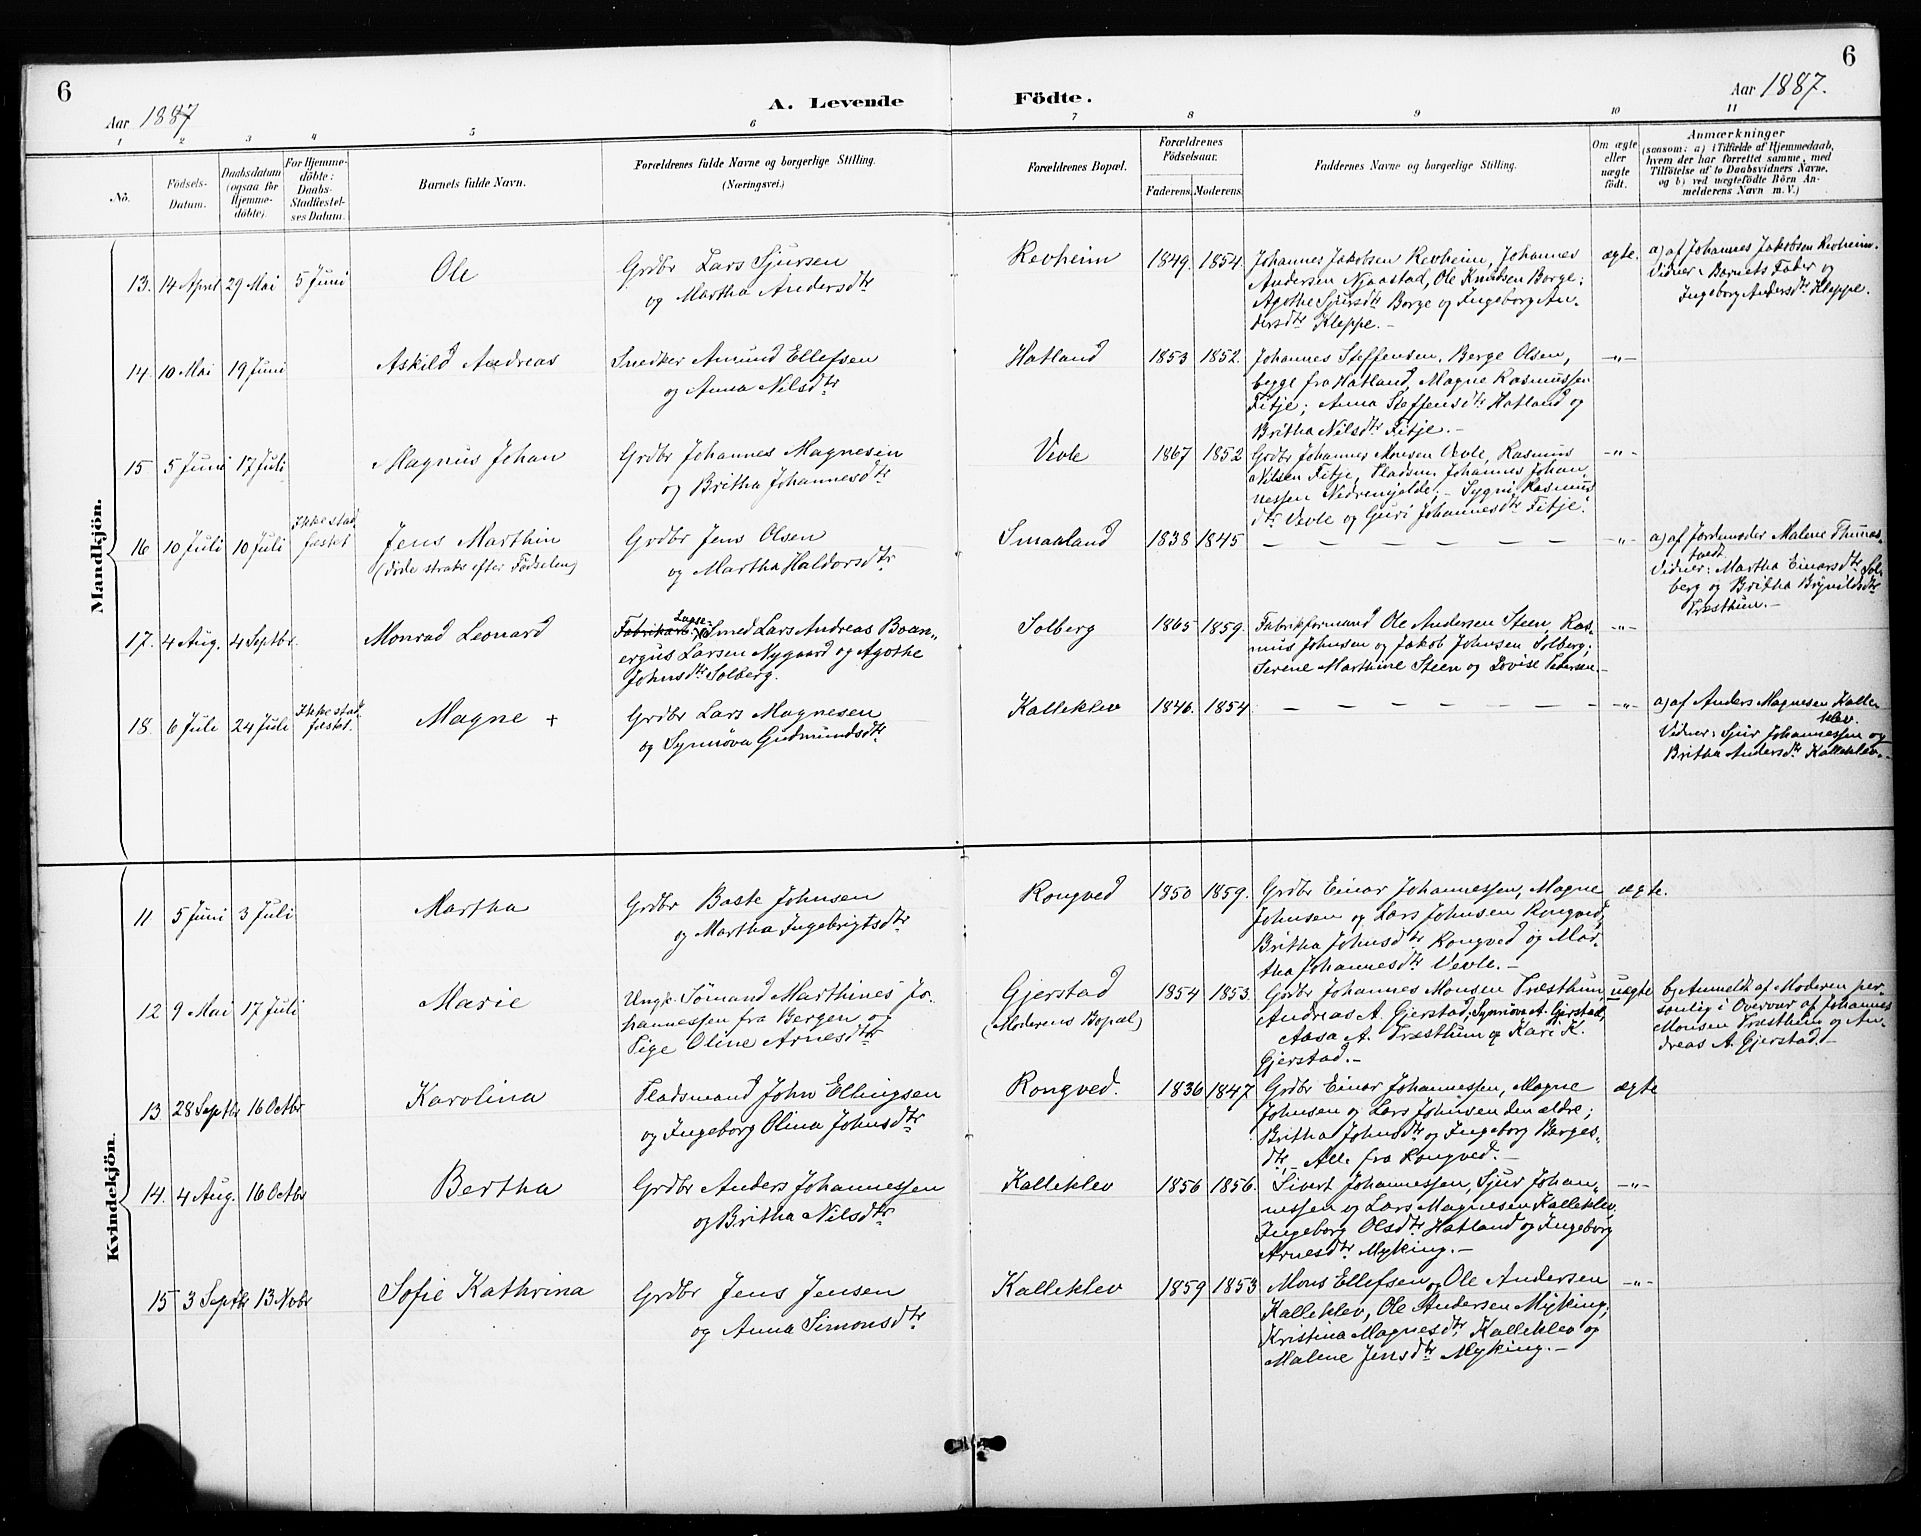 6
Aar 1887
A. Levende Födte.
Aar 1887.
6
1 2 3 4 5 6 7 8 9 10 11
No.
Födsels-
Datum.
Daabsdatum
(ogsaa for
Hjemme-
döbte).
For Hjemme-
döbte:
Daabs-
Stadfæstel-
ses Datum.
Barnets fulde Navn.
Forældrenes fulde Navne og borgerlige Stilling.
(Næringsvei.)
Forældrenes Bopæl.
Forældrenes
Födselsaar.
Faderens. Moderens.
Faddernes Navne og borgerlige Stilling.
Om ægte
eller
uægte
födt.
Anmærkninger
(saasom: a) i Tilfælde af Hjemmedaab,
hvem der har forrettet samme, med
Tilföielse af to Daabsvidners Navne,
og b) ved uægtefödte Börn An-
melderens Navn m. V.)
Mandkjön.
13. 14 April 29 Mai 5 Juni Ole
Grdbr Lars Sjursen
og Martha Andersdtr
Revheim 1849. 1854.
Johannes Jakobsen Revheim, Johannes
Andersen Njaastad, Ole Knudsen Borge;
Agothe Sjursdtr Borge og Ingeborg An-
dersdtr Kleppe.-
ægte.
a) af Johannes Jakobsen Revheim.
Vidner: Barnets Fader og
Ingeborg Andersdtr Kleppe.
14. 10 Mai 19 Juni Askild Andreas
Snedker Amund Ellefsen
og Anna Nilsdtr
Hatland 1853 1852.
Johannes Steffensen, Berge Olsen,
begge fra Hatland, Magne Rasmussen
Fitje; Anna Steffensdtr Hatland og
Britha Nilsdtr Fitje.-
-"-
15 5 Juni 17 Juli Magnus Johan
Grdbr Johannes Magnesen
og Britha Johannesdtr
Vevle 1867 1852
Grdbr Johannes Monsen Vevle, Rasmus
Nilsen Fitje, Pladsm. Johannes Johan
nessen Nedrenjelde; - Sygni Rasmus
dtr Vevle og Guri Johannesdtr Fitje.
-"-
16 10 Juli 10 Juli Ikke stad-
fæstet
Jens Marthin
(døde straks efter Fødselen)
Grdbr Jens Olsen
og Martha Haldorsdtr
Smaaland 1838 1845
- - - - - - -
-"-
a) af Jordemoder Malene Thunes-
tvedt.
Vidner: Martha Einarsdtr Sol-
berg og Britha Brynildsdtr
Træsthun.-
17. 4 Aug. 4 Septbr. Monrad Leonard
Fabrikarb. Smed Lars Andreas Boan-
ergus Larsen Nygaard og Agothe
Johnsdtr Solberg.
Solberg 1865 1859.
Fabrikformand Ole Andersen Steen, Ras-
mus Johnsen og Jakob Johnsen Solberg;
Serene Marthine Steen og Lovise Petersen.-
-"-
18. 6 Jule 24 Juli Ikke stad-
fæstet.
Magne +
Grdbr Lars Magnesen
og Synnøva Gudmundsdtr
Kalleklev 1846. 1854
- - - - - - -
-"-
a) af Anders Magnesen Kalle-
klev.
Vidner: Sjur Johannessen og
Britha Andersdtr Kalleklev.-
Kvindekjön.
11 5 Juni 3 Juli Martha
Grdbr Baste Johnsen
og Martha Ingebrigtsdtr
Rongved 1850 1859.
Grdbr Einar Johannessen, Magne
Johnsen og Lars Johnsen Rongved;
Britha Johnsdtr Rongved og Mar-
tha Johannesdtr Vevle.-
ægte.
12 9 Mai 17 Juli Marie
Ungk. Sømand Marthines Jo-
hannessen fra Bergen og
Pige Oline Arnesdtr
Gjerstad
(Moderens Bopæl)
1854 1853.
Grdbr Johannes Monsen Træsthun,
Andreas A. Gjerstad; Synnøva A. Gjerstad,
Aasa A. Træsthun og Kari K.
Gjerstad.-
uægte
b) Anmeldt af Moderen per-
sonlig i Overvær af Johannes
Monsen Træsthun og An-
dreas A. Gjerstad.-
13 28 Septbr 16 Octbr Karolina
Pladsmand John Ellingsen
og Ingeborg Olina Johnsdtr
Rongved. 1836 1847
Grdbr Einar Johannessen, Magne
Johnsen og Lars Johnsen den ældre;
Britha Johnsdtr og Ingeborg Berges-
dtr,- Alle fra Rongved.-
ægte
14. 4 Aug. 16 Octbr Bertha
Grdbr Anders Johannessen
og Britha Nilsdtr
Kalleklev 1856 1856.
Sivert Johannessen, Sjur Johan-
nessen og Lars Magnesen Kalleklev,
Ingeborg Olsdtr Hatland og Ingeborg
Arnesdtr Myking.-
-"-
15 3 Septbr 13 Nvbr Sofie Kathrina
Grdbr Jens Jensen
og Anna Simonsdtr
Kalleklev 1859 1853
Mons Ellefsen og Ole Andersen
Kalleklev, Ole Andersen Myking;
Kristina Magnesdtr Kalleklev og
Malene Jensdtr Myking.-
-"-